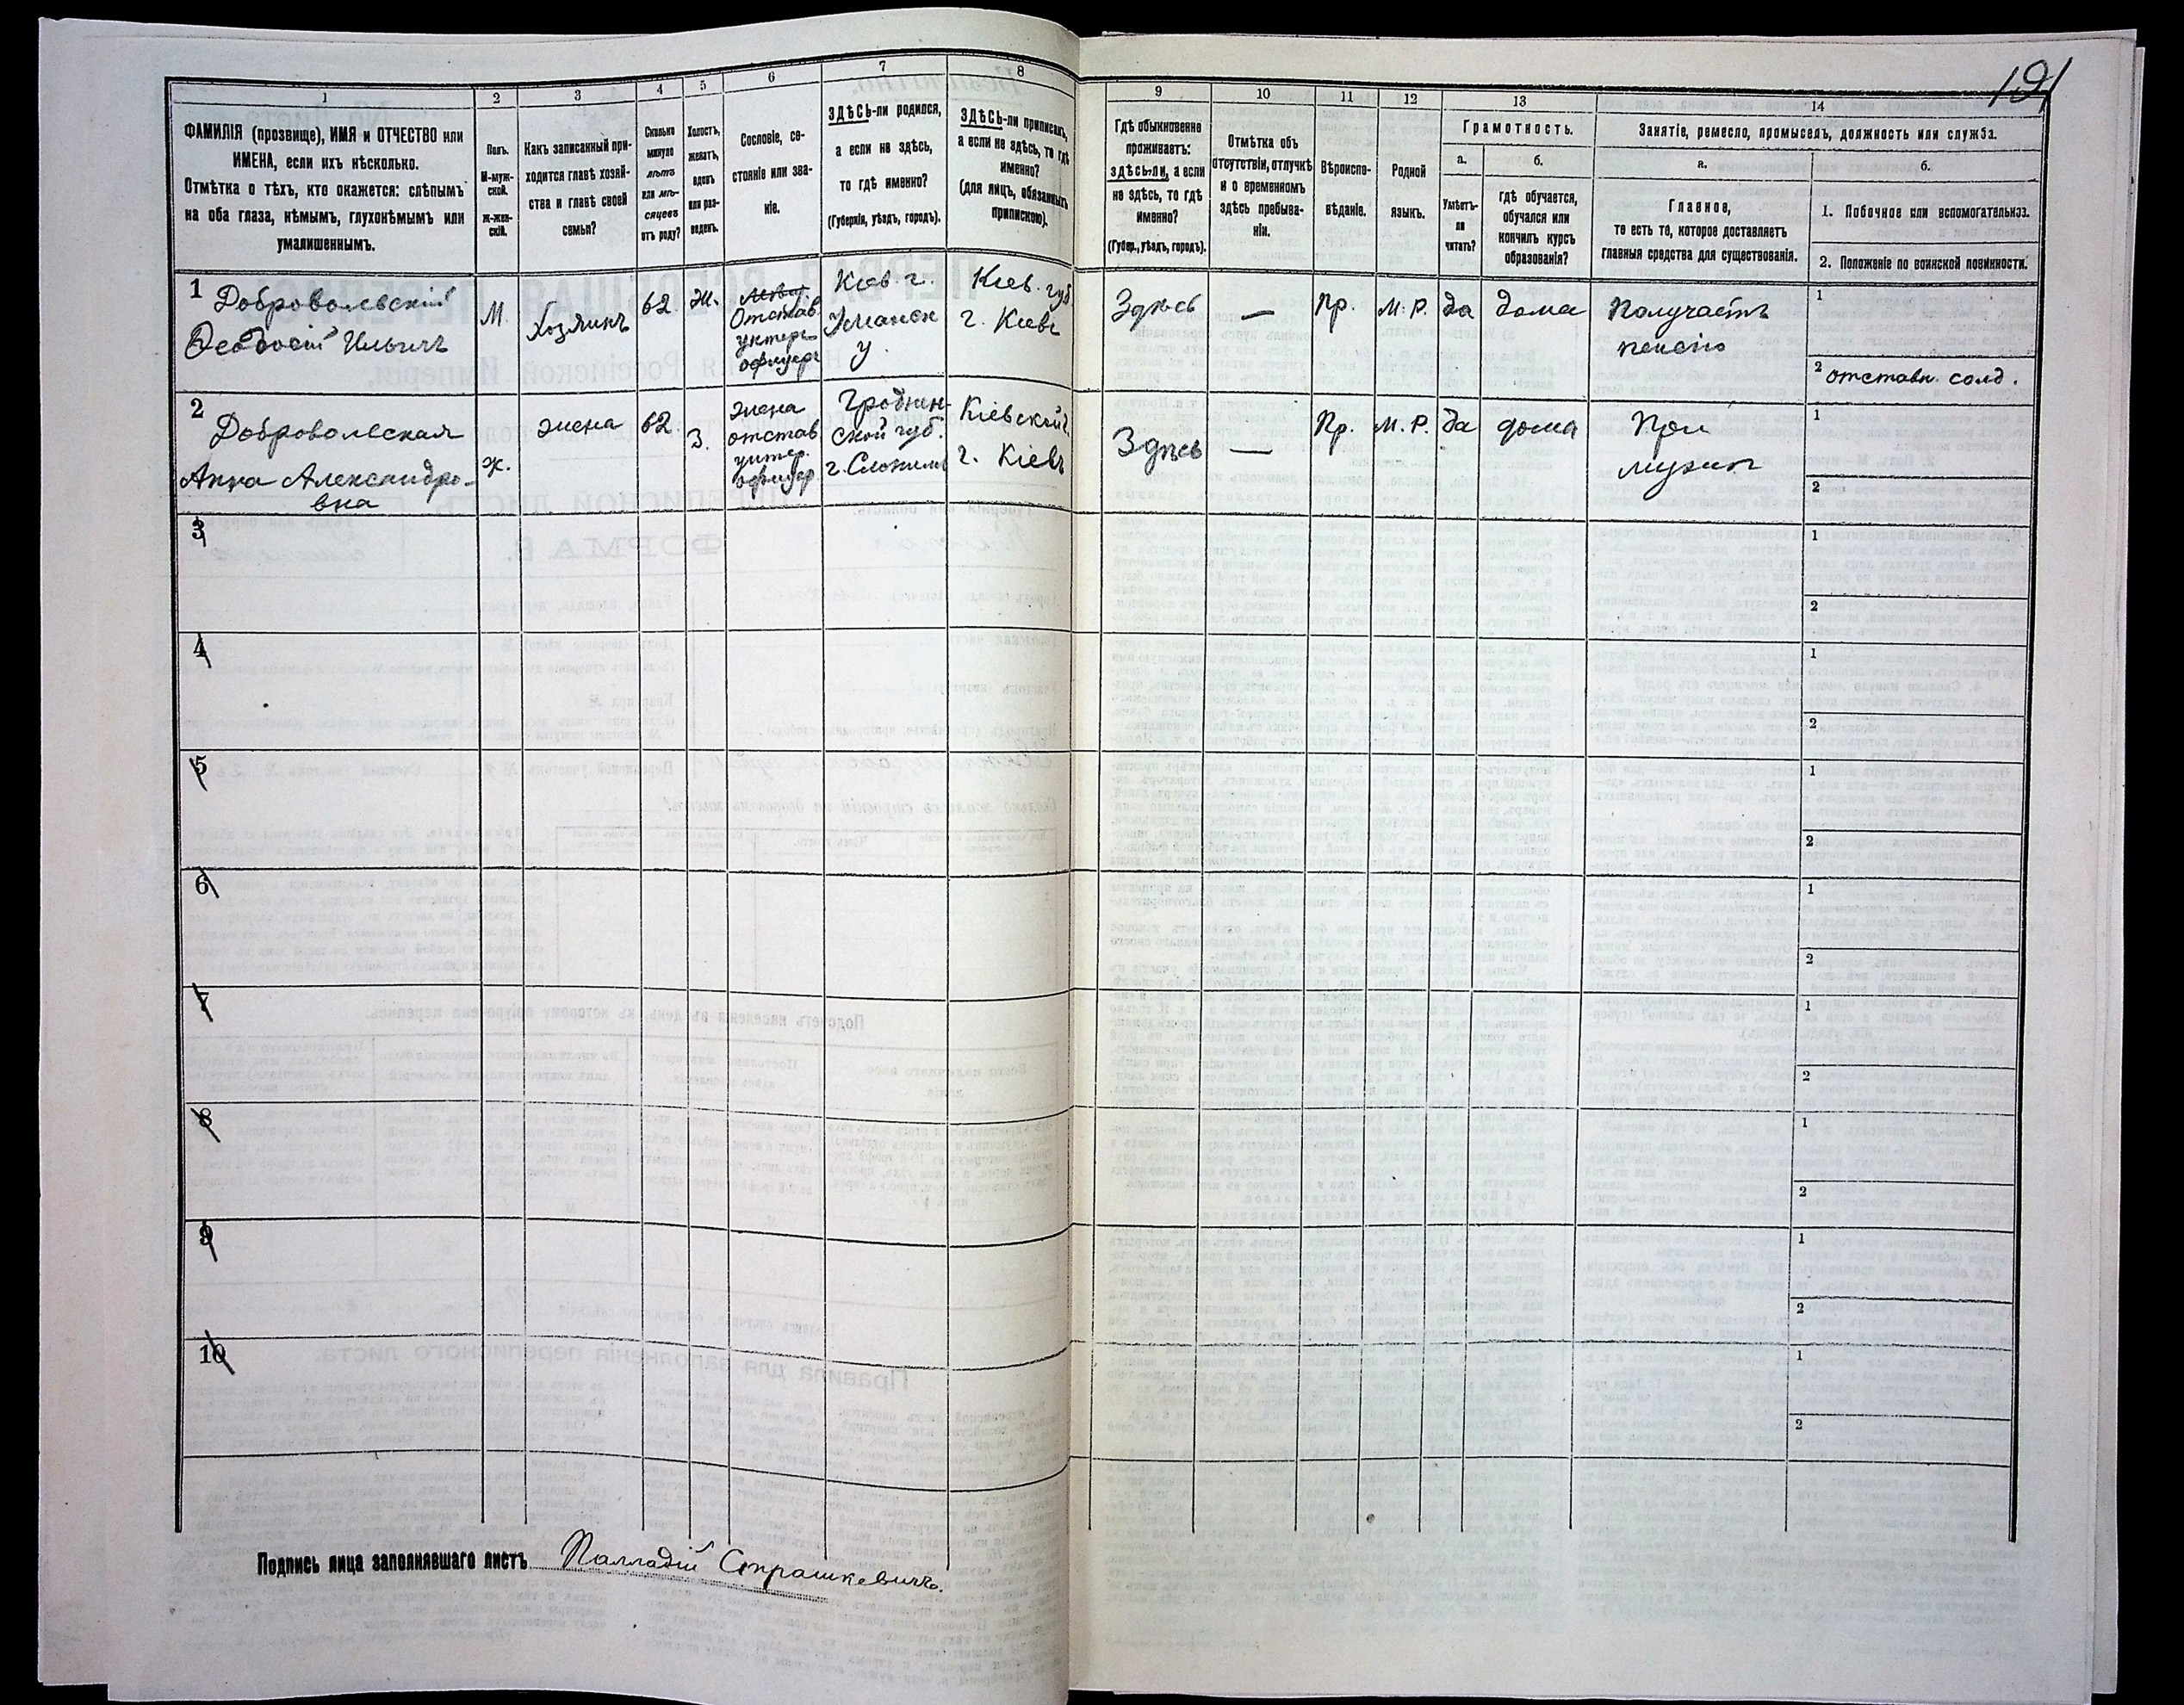 191
1 2 3 4 5 6 7 8 9 10 11 12 13 14
ФАМИЛІЯ (прозвище), ИМЯ и ОТЧЕСТВО или
ИМЕНА, если ихъ нѣсколько.
Отмѣтка о тѣхъ, кто окажется: слѣпымъ
на оба глаза, нѣмымъ, глухонѣмымъ или
умалишеннымъ.
Полъ.
М-муж-
ской.
Ж-жен-
скій.
Какъ записанный при-
ходится главѣ хозяй-
ства и главѣ своей
семьи?
Сколько
минуло
лѣтъ
или мѣ-
сяцевъ
отъ роду?
Холостъ,
женатъ,
вдовъ
или раз-
веденъ.
Сословіе, со-
стояніе или зва-
ніе.
ЗДѢСЬ-ли родился,
а если не здѣсь,
то гдѣ именно?
(Губернія, уѣздъ, городъ).
ЗДѢСЬ-ли приписанъ,
а если не здѣсь, то гдѣ
именно?
(для лицъ, обязанныхъ
припискою).
Гдѣ обыкновенно
проживаетъ:
здѣсь-ли, а если
не здѣсь, то гдѣ
именно?
(Губер., уѣздъ, городъ).
Отмѣтка объ
отсутствіи, отлучкѣ
и о временномъ
здѣсь пребыва-
ніи.
Вѣроиспо-
вѣданіе.
Родной
языкъ.
Грамотность.
а.
Умѣетъ-
ли
читать?
б.
гдѣ обучается,
обучался или
кончилъ курсъ
образованія?
Занятіе, ремесло, промыселъ, должность или служба.
а.
Главное,
то есть то, которое доставляетъ
главныя средства для существованія.
б.
1. Побочное или вспомогательное.
2. Положеніе по воинской повинности.
1 Добровольскій
Ѳеодосій Ильичъ
М.
Хозяинъ
62
Ж.
Отстав.
унтеръ
офицеръ
Кіев. г.
Уманск
у.
Кіев. губ
г. Кіевъ
Здѣсь
—
Пр.
М. Р.
да
дома
Получаетъ
пенсію
1
2 отставн. солд.
2 Добровольская
Анна Александро-
вна
ж.
жена
62
З.
жена
отстав
унтер.
офицер
Гроднен-
ской губ.
г. Слонимъ
Кіевской г.
г. Кіевъ
Здѣсь
—
Пр.
М. Р.
да
дома
При
мужѣ
1
2
3
1
2
4
1
2
5
1
2
6
1
2
7
1
2
8
1
2
9
1
2
10
1
2
Подпись лица заполнявшаго листъ Палладій Страшкевичъ.